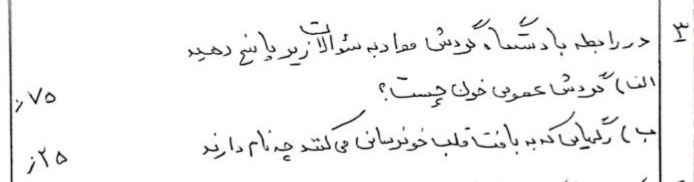 ۳ در رابطه با دستگاه گردش مواد به سؤالات زیر پاسخ دهید
الف) گردش عمومی خون چیست؟ ۷۵/
ب) رگهایی که به بافت قلب خونرسانی می کنند چه نام دارند ۲۵/